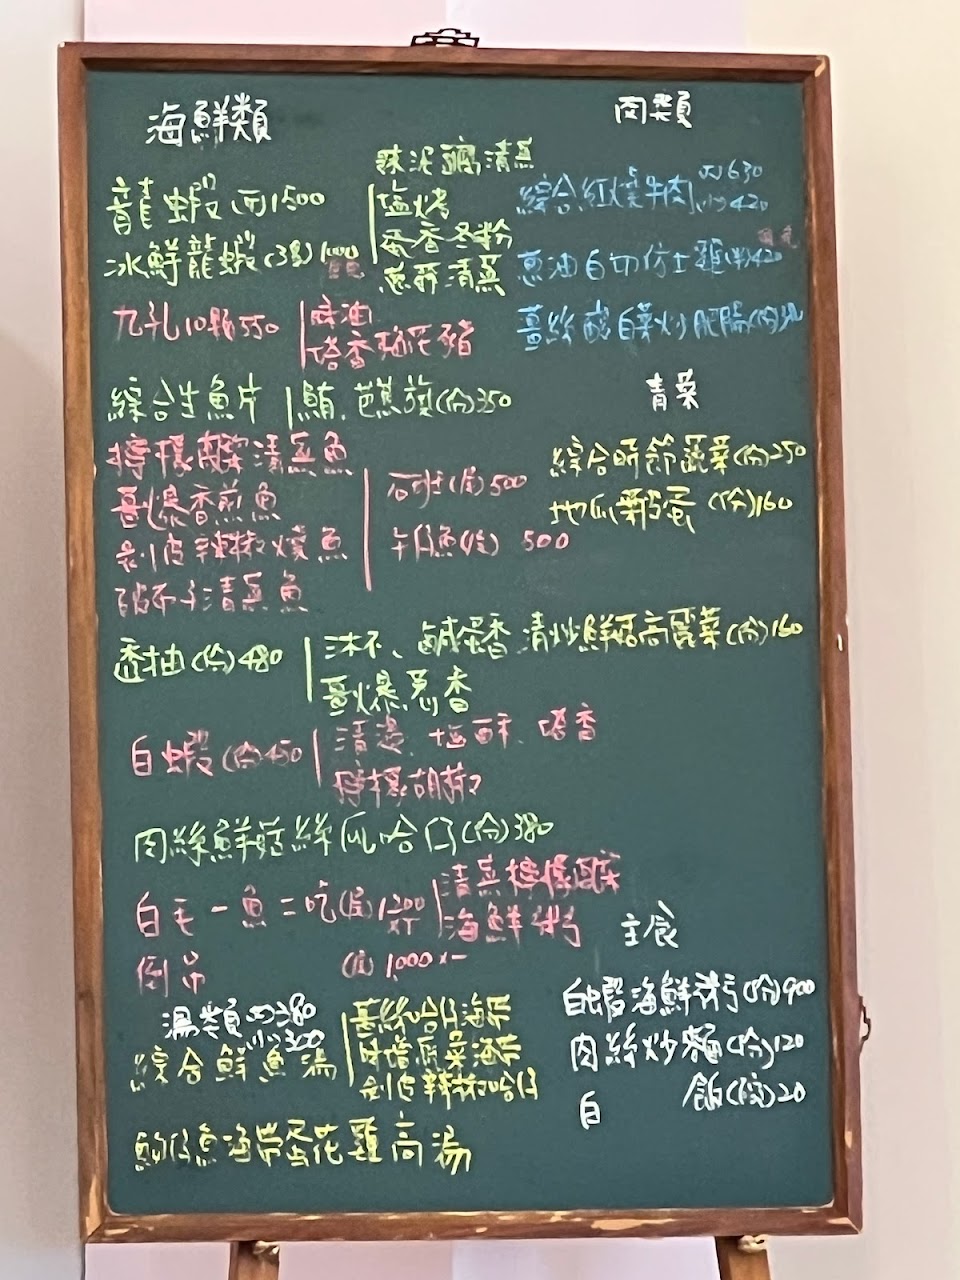 海鮮類
龍蝦(兩)1500
冰鮮龍蝦(3兩)1000
蒜泥 清蒸
塩烤
蛋香冬粉
蔥酥清蒸
九孔10顆550
麻油
塔香梅花豬
綜合生魚片 鮪、芭蕉旗(份)350
檸檬酸菜清蒸魚
薑爆香煎魚
剝皮辣椒燒魚
破布子清蒸魚
石斑(尾)500
午仔魚(尾) 500
透抽(份)480
沐禾、鹹蛋香
薑爆蔥香
白蝦(份)450
清燙、塩酥、塔香
檸檬胡椒
肉絲鮮菇絲瓜哈仔(份)380
白毛一魚二吃(尾)1200
清蒸檸檬酸菜
海鮮粥
倒吊 (尾)1000
湯類 (大)380
(小)300
綜合鮮魚湯
薑絲哈仔海帶
味增 海帶
剝皮辣椒哈仔
魩仔魚海帶蛋花雞高湯
肉類
綜合紅燒牛肉 (大)630
(小)420
蔥油白切仿土雞(半)420
薑絲酸白菜炒肥腸(份)
青菜
綜合時節蔬菜(份)250
地瓜 蛋 (份)160
清炒鮮菇高麗菜(份)160
主食
白蝦海鮮粥(份)900
肉絲炒麵(份)120
白 飯(碗)20